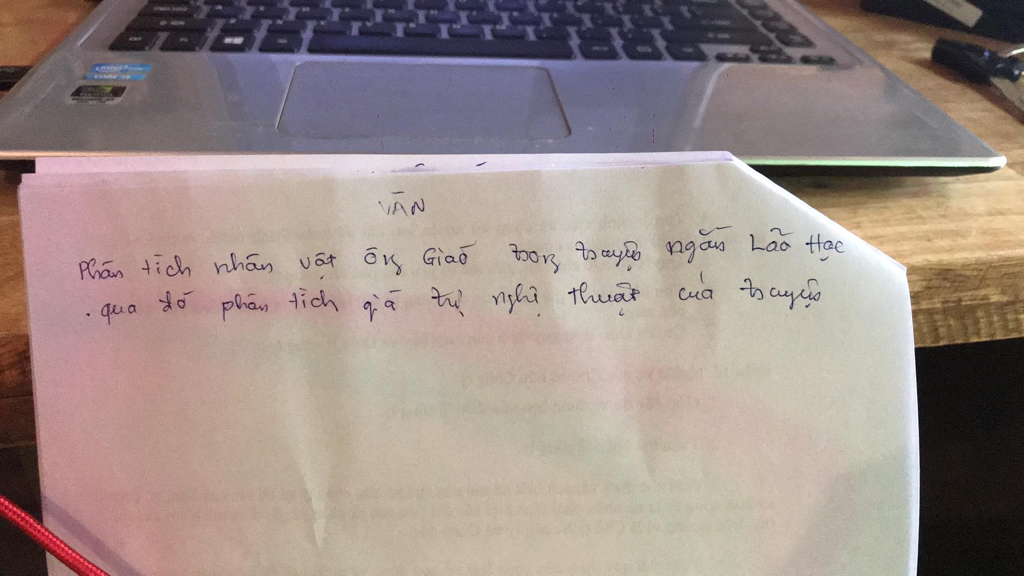 VĂN
Phân tích nhân vật ông Giáo trong truyện ngắn Lão Hạc
. qua đó phân tích giá trị nghệ thuật của truyện